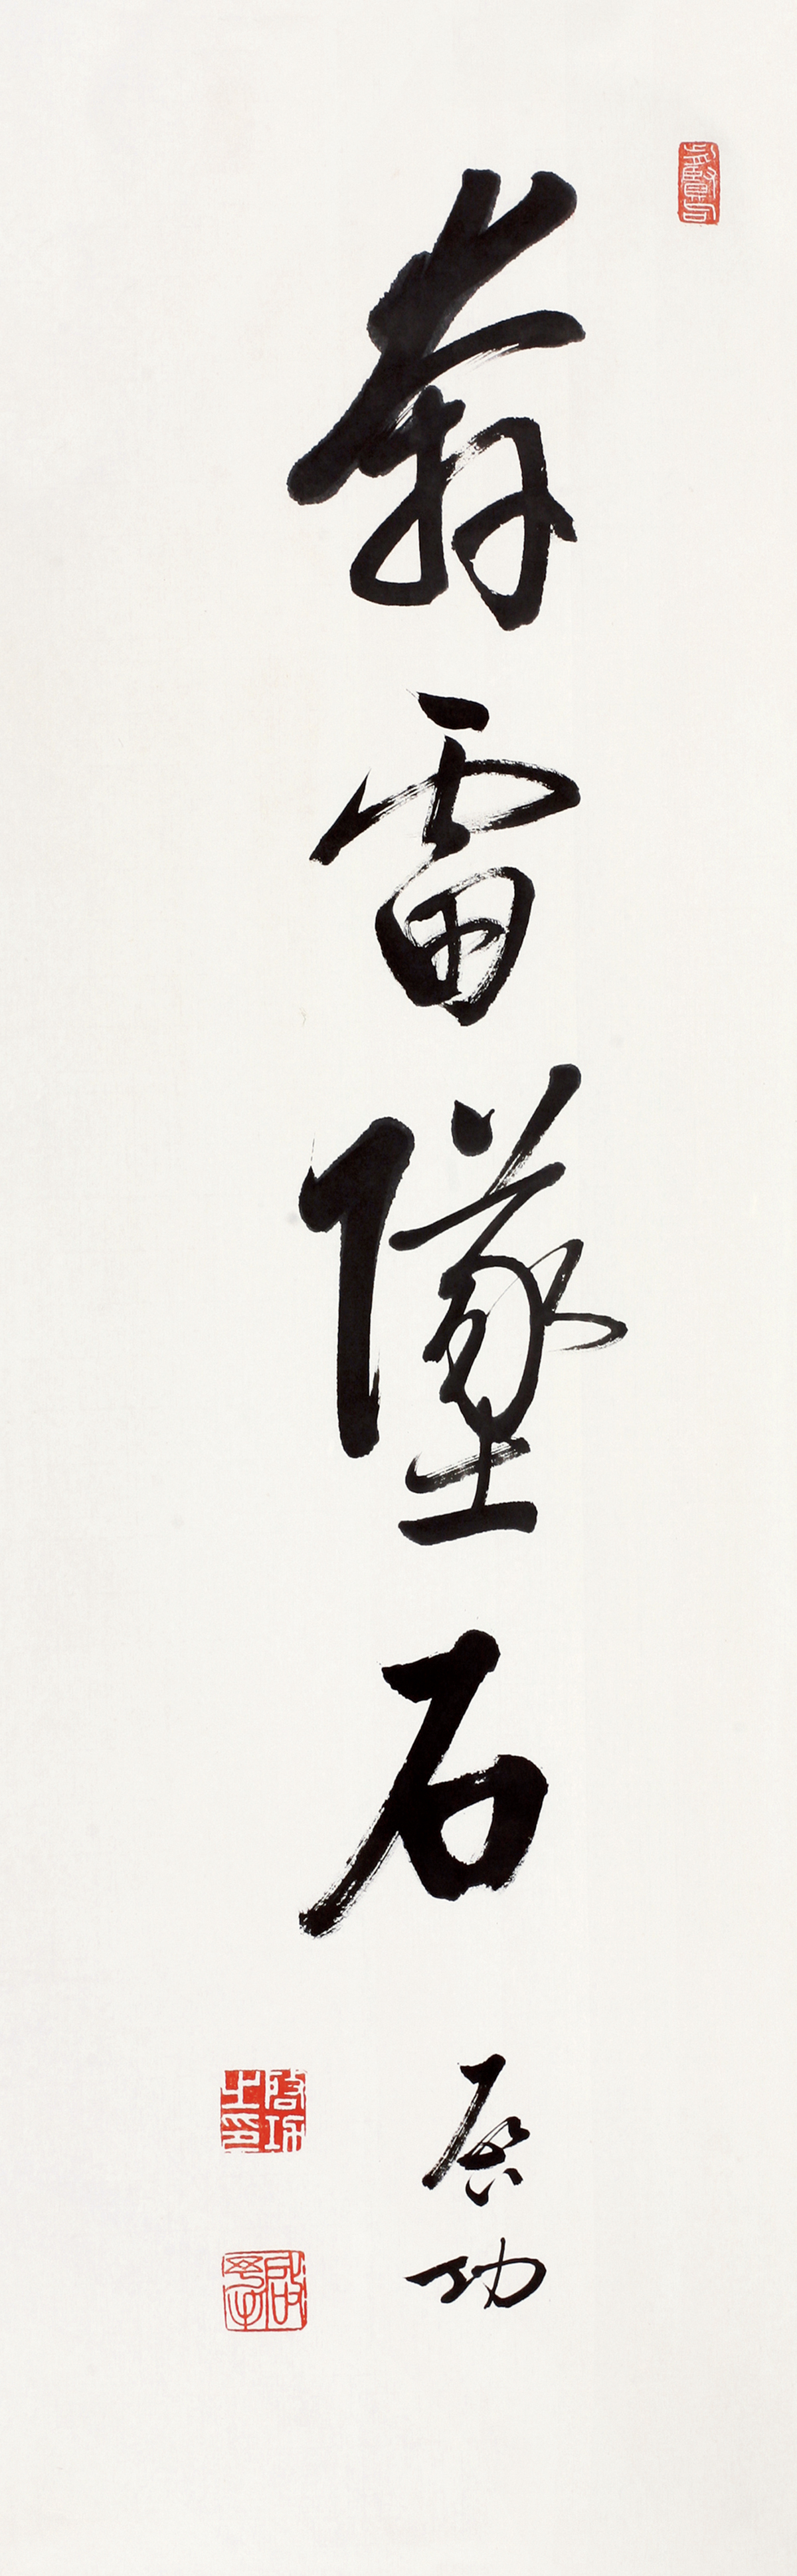 奔雷墜石
启功
启功之印